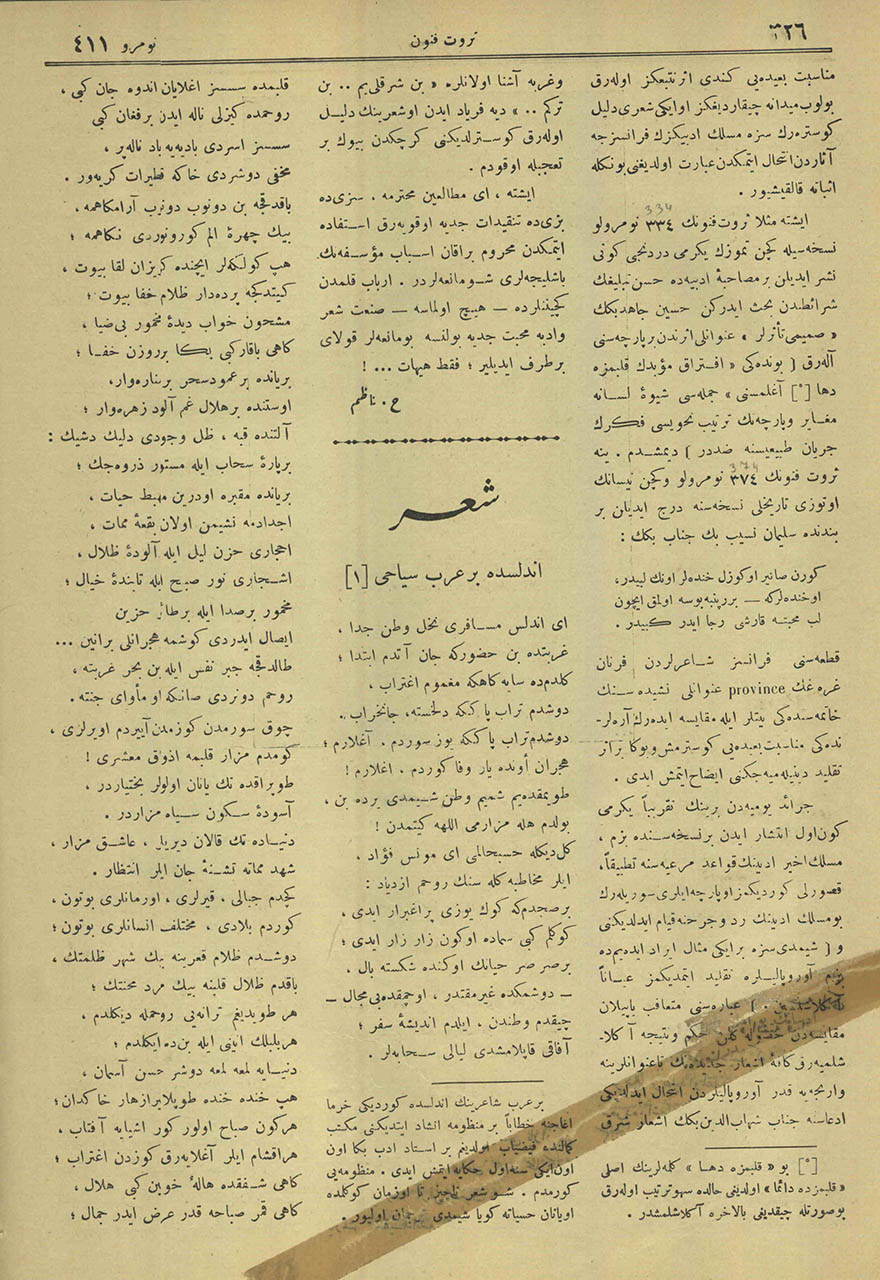 ٣٢٦
ثروت فنون
نومرو ٤١١
مناسبت بعیده‌یی کندی اثر تتبعکز اوله‌رق
بولوب میدانه چیقاردیغکز او ایکی شعری دلیل
کوستره‌رك سزه مسلك ادبیکزك فرانسزجه
آثاردن انتحال ایتمکدن عبارت اولدیغنی بونکله
اثباته قالقیشیور .
ایشته مثلا ثروت فنونك ٣٣٤ نومرولو
334
نسخه‌سیله کچن تموزك یکرمی دردنجی کونی
نشر ایدیلن بر مصاحبهٔ ادبیه‌ده حسن تبلیغك
شرائطندن بحث ایدرکن حسین جاهد بکك
« صمیمی تأثرلر » عنوانلی اثرندن بر پارچه‌سنی
آله‌رق ( بونده‌کی « افتراق مؤیدك قلبمزه
دها [*] آغلمسنی » جمله‌سی شیوهٔ لسانه
مغایر و پارچه‌نك ترتیب نحویسی فکرك
جریان طبیعیسنه ضددر ) دیمشدم . ینه
ثروت فنونك ٣٧٤ نومرولو وکچن نیسانك
374
اوتوزی تاریخلی نسخه‌سنه درج ایدیلن بر
بندنده سلیمان نسیب بك جناب بکك :
کورن صانیر او کوزل خنده‌لر اونك لبیدر،
او خنده‌لرکه — بررپنبه بوسه اولمق ایچون
لب محبته قارشی رجا ایدر کبیدر .
قطعه‌سنی فرانسز شاعرلردن فرنان
غره‌غك province عنوانلی نشیده‌سنك
خاتمه‌سنده‌کی بیتلر ایله مقایسه ایده‌رك آره‌لر-
نده‌کی مناسبت بعیده‌یی کوسترمش و بوکا بر اثر
تقلید دینیله‌میه‌جکنی ایضاح ایتمش ایدی .
جرائد یومیه‌دن برینك تقریباً یکرمی
کون اول انتشار ایدن بر نسخه‌سنده بزم ،
مسلك اخیر ادبینك قواعد مرعیه‌سنه تطبیقاً،
قصورلی کوردیکمز او پارچه‌ایلری سوریله‌رك
بو مسلك ادبینك رد و جرحنه قیام ایدلدیکنی
و ( شیمدی سزه بر ایکی مثال ایراد ایده‌یم‌ده
بزم آوروپالیلره تقلید ایتدیکمز عیاناً
آکلاشلسین . ) عباره‌سنی متعاقب یاپیلان
مقایسه‌دن حصوله کلن حکم و نتیجه آکلا-
شلمیه‌رق کافهٔ اشعار جدیده‌نك تا عنوانلرینه
وارنجه‌یه قدر آوروپالیلردن انتحال ایدلدیکی
ادعاسنه جناب شهاب‌الدین بکك اشعار شرق
[*] بو « قلبمزه دها » کله‌لرینك اصلی
« قلبمزده دائما » اولدیغی حالده سهو ترتیب اوله‌رق
بوصورتله چیقدیغی بالاخره آکلاشلمشدر .
وغربه آشنا اولانلره « بن شرقلی‌یم .. بن
ترکم .. » دیه فریاد ایدن او شعرینك دلیل
اوله‌رق کوسترلدیکنی کرچکدن بیوك بر
تعجبله اوقودم .
ایشته ، ای مطالعین محترمه ، سزی‌ده
بزی‌ده تنقیدات جدیه اوقویه‌رق استفاده
ایتمکدن محروم براقان اسباب مؤسفه‌نك
باشلیجه‌لری شو مانعه‌لردر . ارباب قلمدن
کچیننلرده — هیچ اولماسه — صنعت شعر
وادبه محبت جدیه بولنسه بو مانعه‌لر قولای
برطرف ایدیلیر ؛ فقط هیهات ... !
ح . ناظم
شعر
اندلسده بر عرب سیاحی [١]
ای اندلس مسافری نخل وطن جدا ،
غربتده بن حضورکه جان آتدم ابتدا ؛
کلدم‌ده سایه کاهکه مغموم اغتراب ،
دوشدم تراب پاککه دلخسته، جانخراب .
دوشدم تراب پاککه یوز سوردم . آغلارم ؛
هجران اوننده یار وفا کوردم . اغلارم !
طویمقده‌یم شمیم وطن شیمدی برده بن ،
بولدم هله مزارمی اللهه کیتمدن !
کل دیکله حسبحالمی ای مونس فؤاد ،
ایلر مخاطبه کله سنك روحم ازدیاد :
بر صبحدمکه کوك یوزی پر اغبرار ایدی ،
کوکلم کبی سماده او کون زار زار ایدی ؛
بر صرصر حیاتك اوکنده شکسته بال ،
— دوشمکده غیر مقتدر ، اوچمقده بی‌مجال —
چیقدم وطندن ، ایلدم اندیشهٔ سفر ؛
آفاقی قاپلامشدی لیالی سحابه‌لر .
بر عرب شاعرینك اندلسده کوردیکی خرما
اغاجنه خطاباً بر منظومه انشاد ایتدیکنی مکتب
کمالنده فیضیاب اولدیغم بر استاد ادب بکا اون
اون‌ایکی سنه اول حکایه ایتمش ایدی . منظومه‌یی
کورمدم . شو شعر ناچیز تا اوزمان کوکلمده
اویانان حسیاته کویا شیمدی ترجمان اولیور .
قلبمده سسسز اغلایان اندوه جان کبی ،
روحمده کیزلی ناله ایدن بر فغان کبی
سسسز اسردی بادیه‌یه باد ناله‌پر ،
مخفی دوشردی خاکه قطیرات کریه‌ور .
باقدقجه بن دونوب دونرب آرامکاهمه ،
بیك چهرهٔ الم کورونوردی نکاهمه ؛
هپ کولکه‌لر ایچنده کریزان لقا بیوت ،
کیتدکجه پرده‌دار ظلام خفا بیوت ؛
مشحون خواب دیدهٔ مخمور بی‌ضیا ،
کاهی باقار کبی یکا بر روزن خفا ؛
بر یانده پر عمود سحر بر مناره‌وار،
اوستنده بر هلال غم آلود زهره‌وار ؛
آلتنده قبه ، ظل وجودی دلیك دشیك :
بر پارهٔ سحاب ایله مستور ذروه‌جك ؛
بر یانده مقبره اودرین مهبط حیات ،
اجدادمه نشیمن اولان بقعهٔ ممات ،
احجاری حزن لیل ایله آلودهٔ ظلال ،
اشجاری نور صبح ایله تابندهٔ خیال ؛
مخمور بر صدا ایله بر طائر حزین
ایصال ایدردی کوشمه هجرانلی بر انین ...
طالدقجه جبر نفس ایله بن بحر غربته ،
روحم دونردی صانکه او مأوای جنته .
چوق سورمدن کوزمدن آییردم او یرلری ،
کومدم مزار قلبمه اذواق معشری !
طوپراقده تك یانان اولولر بختیاردر ،
آسودهٔ سکون سیاه مزاردر .
دنیاده تك قالان دیریلر ، عاشق مزار ،
شهد مماته تشنهٔ جان ایلر انتظار .
کچدم جبالی ، قیرلری ، اورمانلری بوتون ،
کوردم بلادی ، مختلف انسانلری بوتون ؛
دوشدم ظلام قعرینه بیك شهر ظلمتك ،
باقدم ظلال قلبنه بیك مرد محنتك ؛
هر طویدیغم ترانه‌یی روحمله دیکلدم ،
هر بلبلك انینی ایله بن‌ده ایکلدم ؛
دنیایه لمعه لمعه دوشر حسن آسمان ،
هپ خنده خنده طوپلایر ازهار خاکدان ؛
هر کون صباح اولور کور اشیایه آفتاب ،
هر اقشام ایلر آغلایه‌رق کوزدن اغتراب ؛
کاهی شفقده هالهٔ خوبین کبی هلال ،
کاهی قمر صباحه قدر عرض ایدر جمال ؛